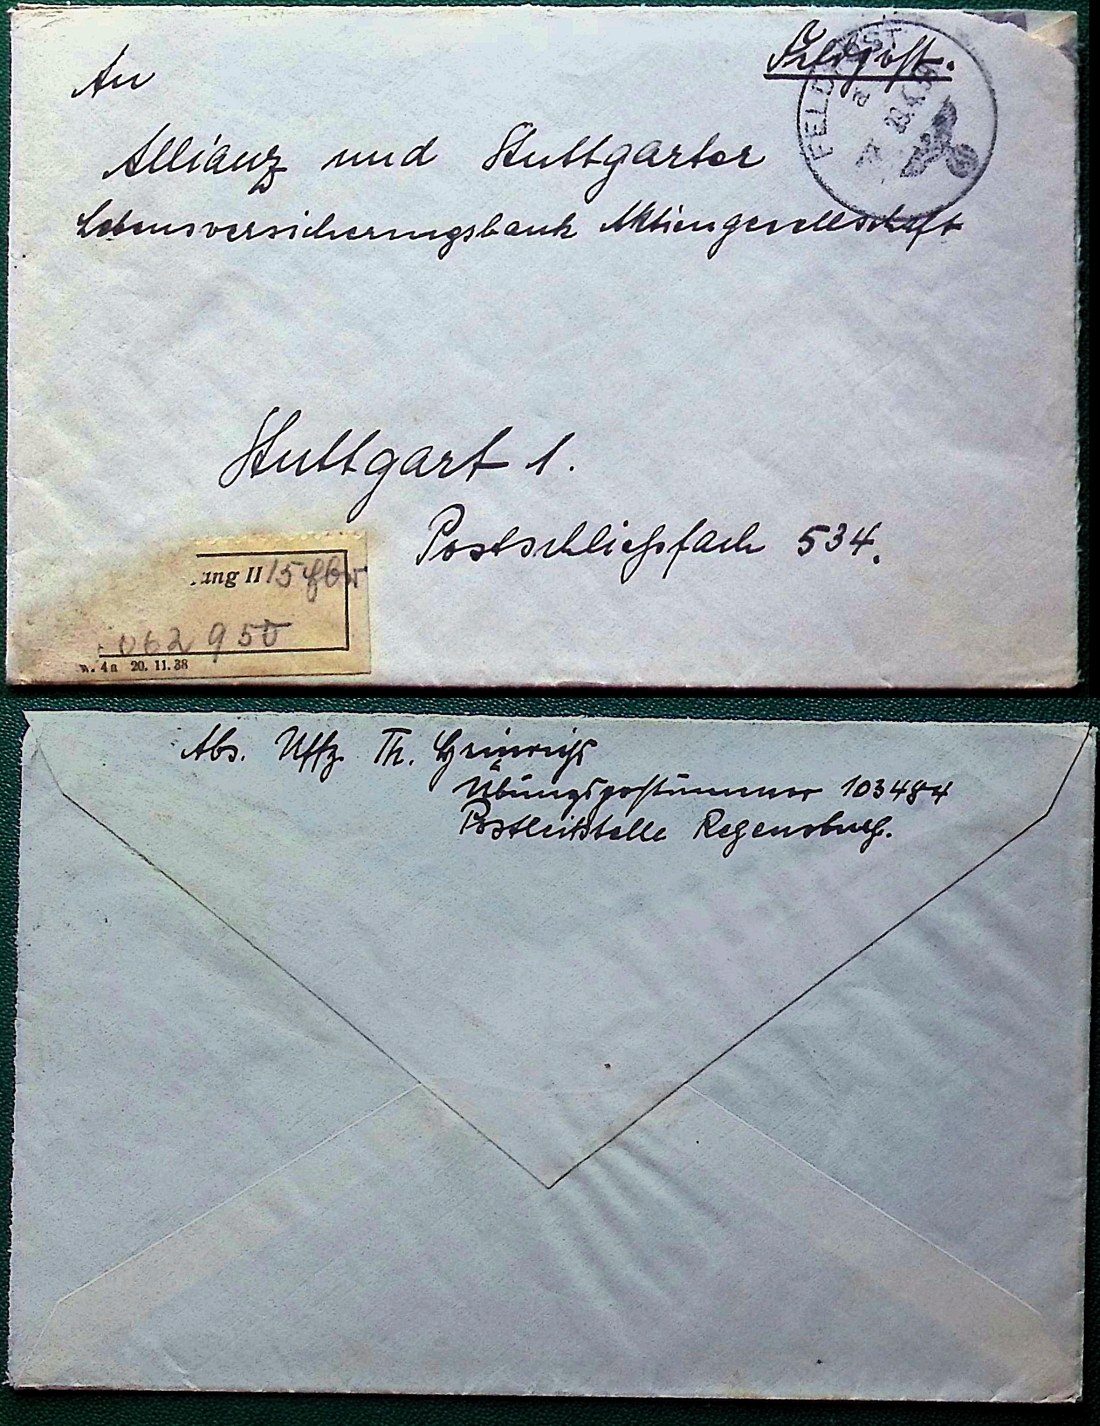 Feldpost.
FELDPOST
An
Allianz und Stuttgarter
Lebensversicherungsbank Aktiengesellschaft
Stuttgart 1.
Postschließfach 534.
ung II/5
062 950
4a 20. 11. 38
Abs. Uffz. Th. Heinrichs
Übungspostnummer 103484
Postleitstelle Regensburg.